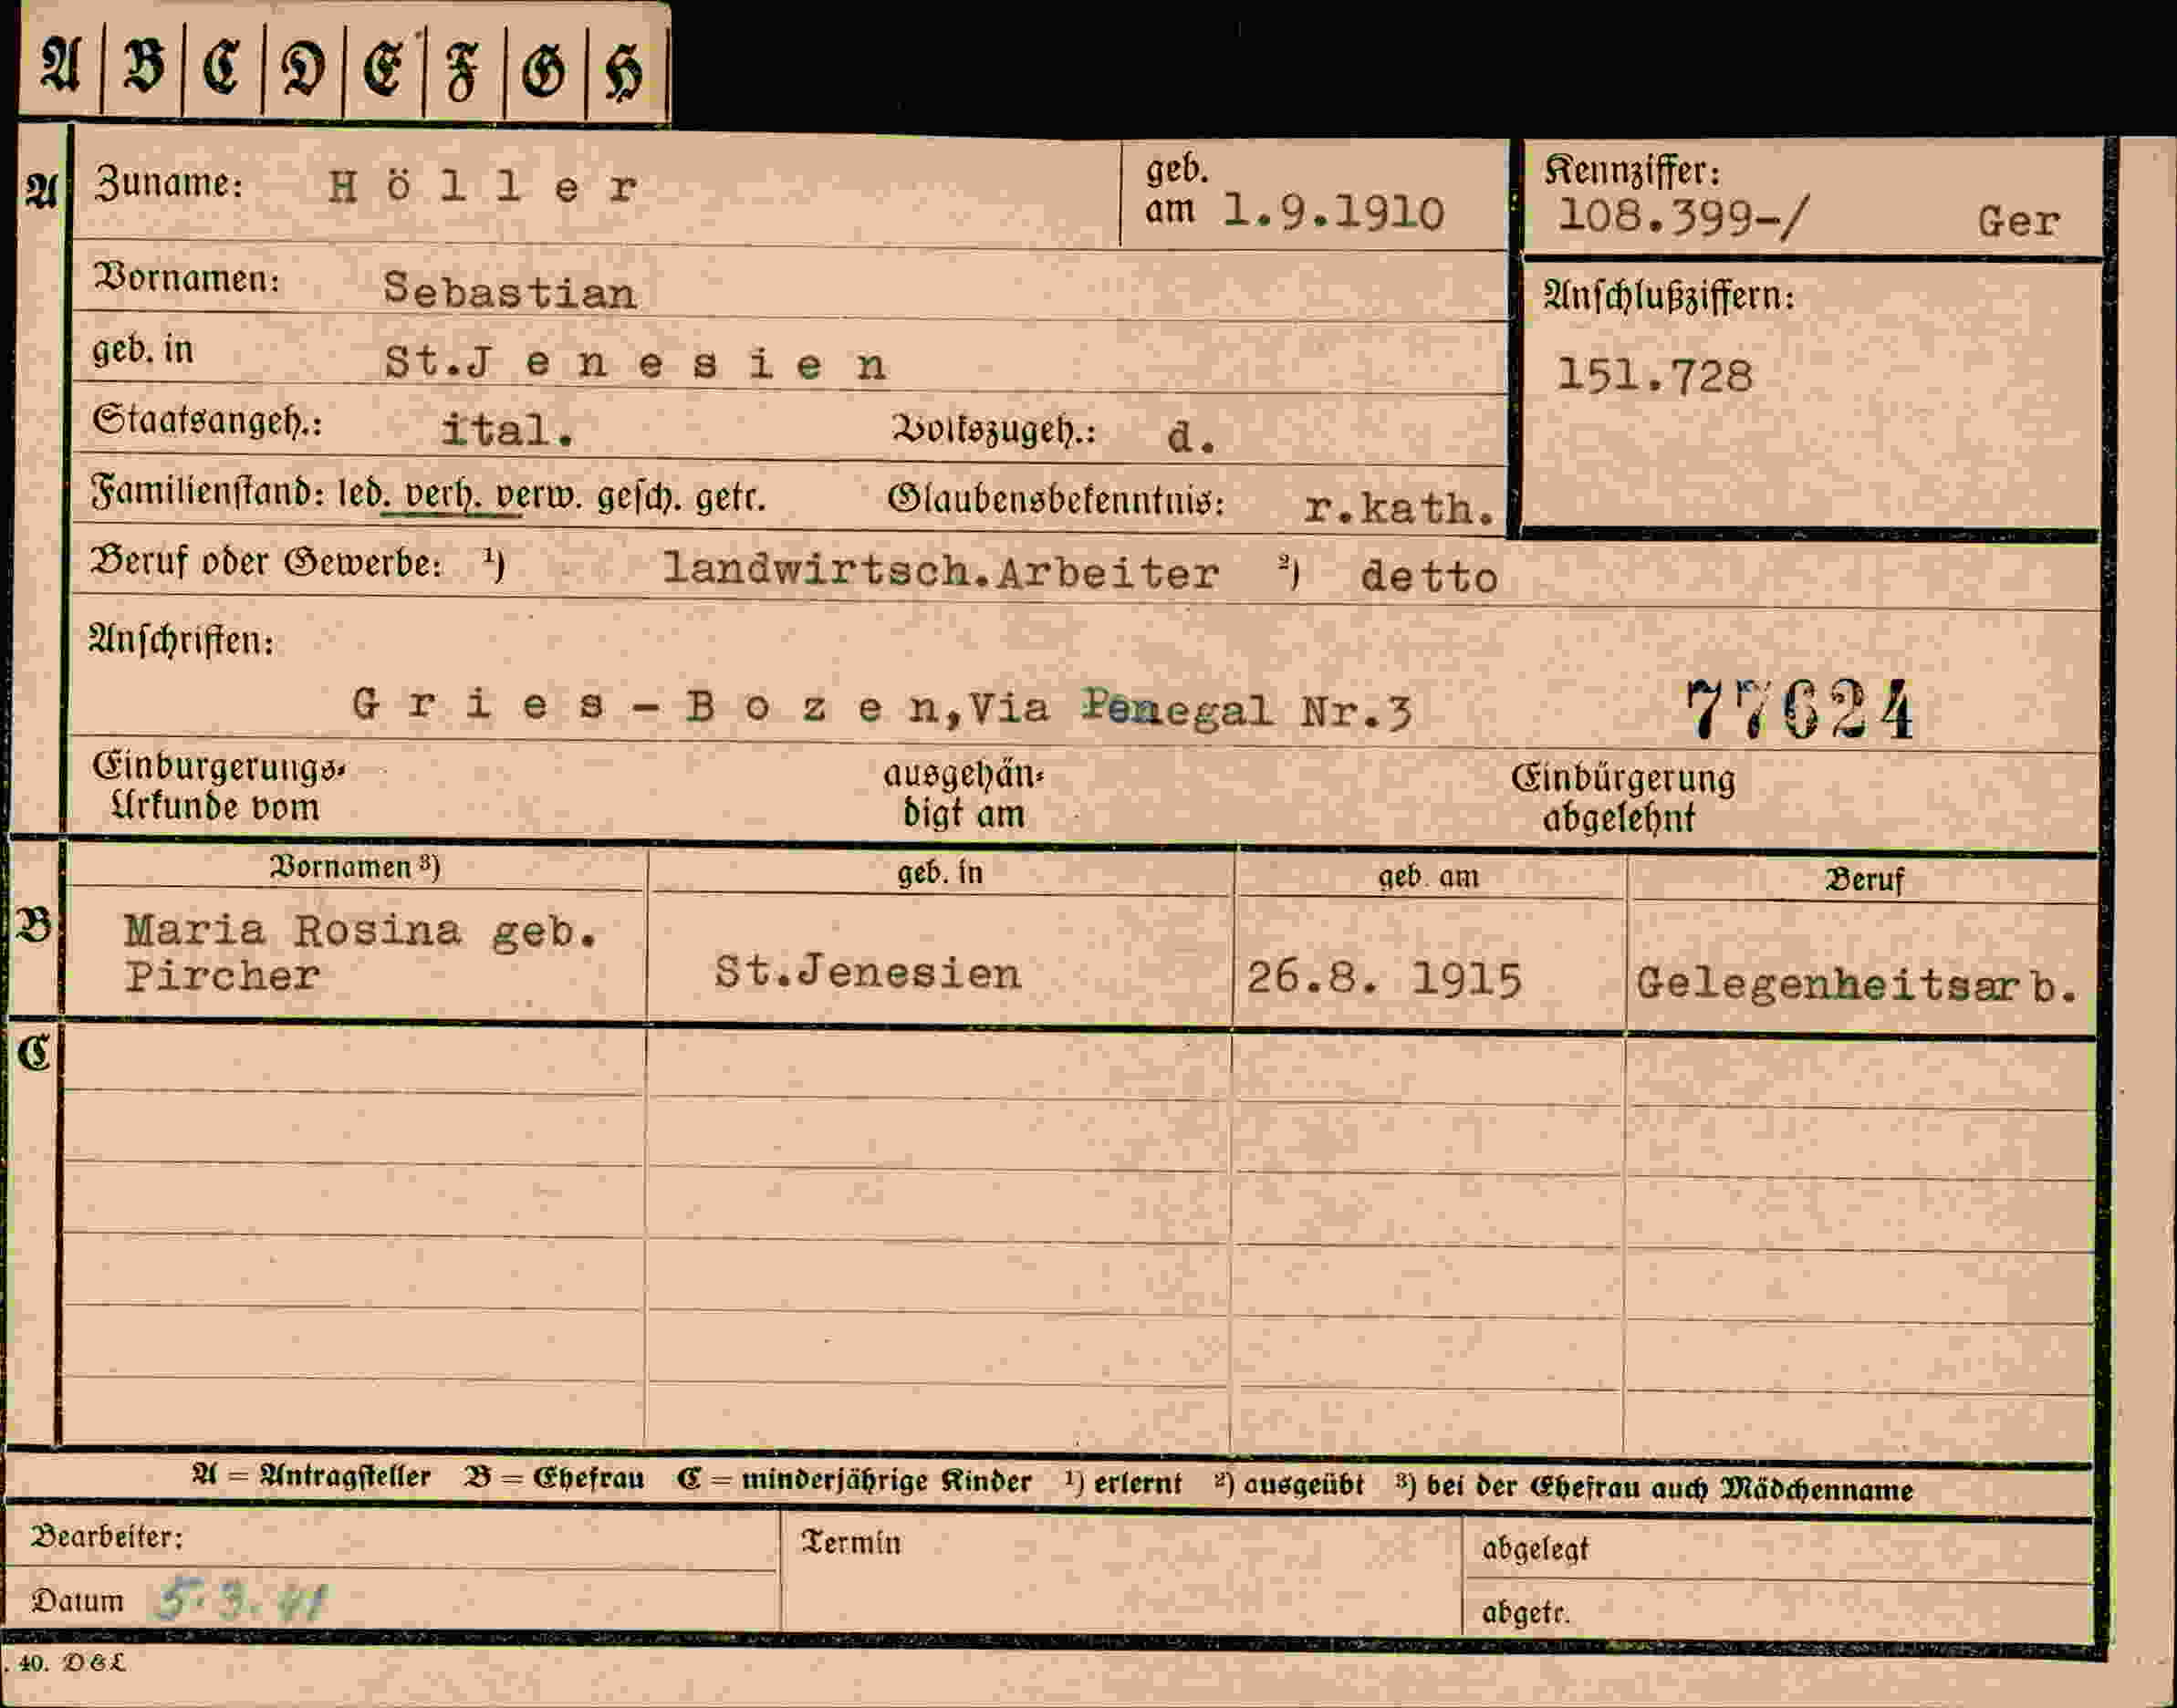 A | B | C | D | E | F | G | H
A Zuname: Höller geb. am 1.9.1910
Kennziffer: 108.399-/ Ger
Vornamen: Sebastian
Anschlußziffern:
geb. in St.Jenesien
151.728
Staatsangeh.: ital. Volkszugeh.: d.
Familienstand: led. verh. verw. gesch. getr. Glaubensbekenntnis: r.kath.
Beruf oder Gewerbe: ¹) landwirtsch.Arbeiter ²) detto
Anschriften:
Gries-Bozen,Via Penegal Nr.3 77624
Einbürgerungs- ausgehän- Einbürgerung
Urkunde vom digt am abgelehnt
Vornamen ³) geb. in geb. am Beruf
B Maria Rosina geb.
Pircher St.Jenesien 26.8. 1915 Gelegenheitsarb.
C
A = Antragsteller B = Ehefrau C = minderjährige Kinder ¹) erlernt ²) ausgeübt ³) bei der Ehefrau auch Mädchenname
Bearbeiter: Termin abgelegt
Datum 5.3.41 abgetr.
. 40. DEL